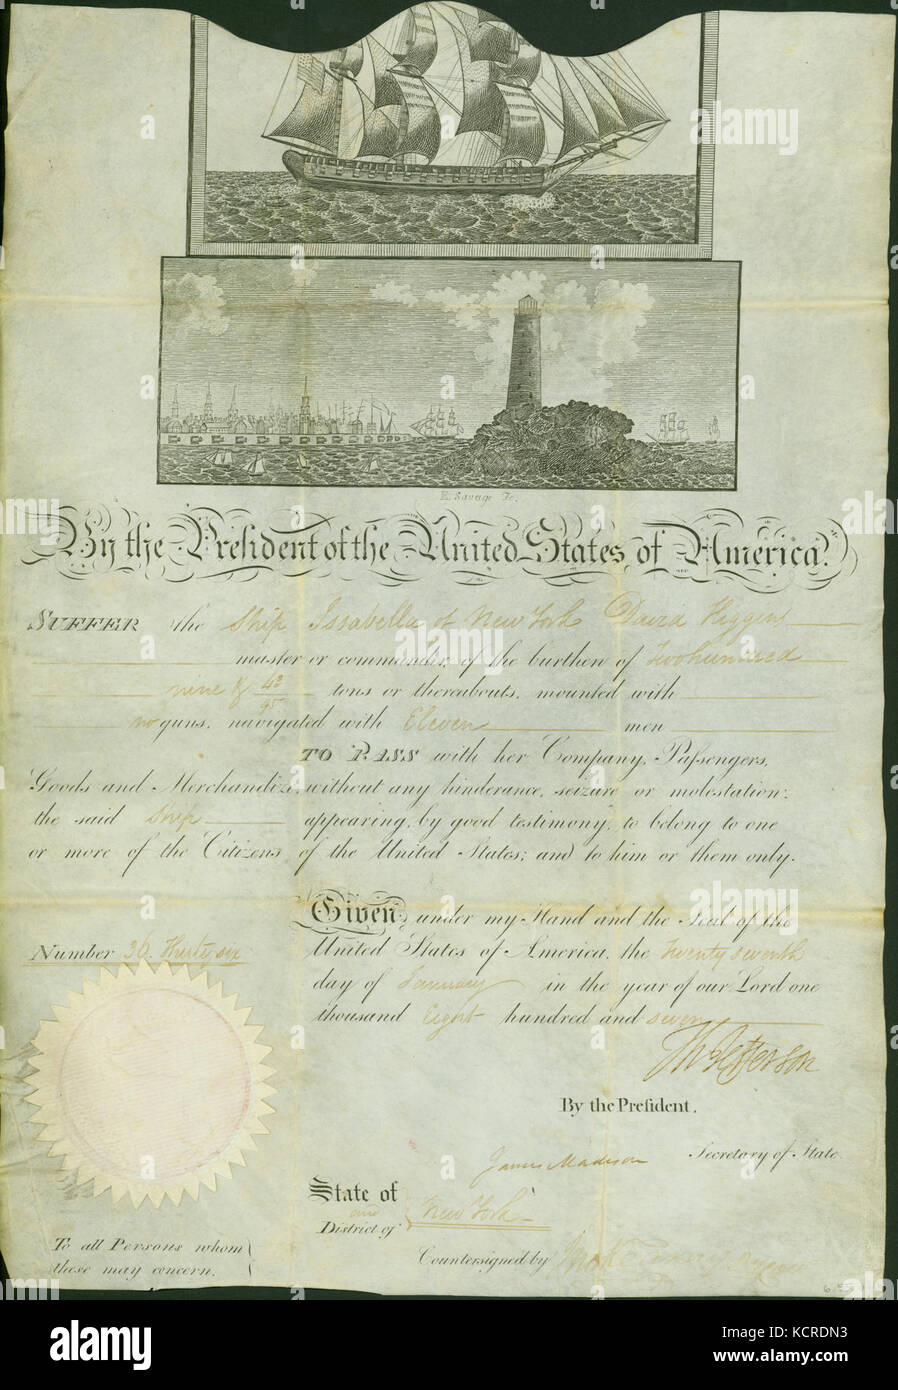 E. Savage Fc.
By the President of the United States of America.
SUFFER the Ship Issabella of New York David Higgens
master or commander, of the burthen of Two hundred
nine & 43/95 tons or thereabouts, mounted with
no guns, navigated with Eleven men
TO PASS with her Company, Passengers,
Goods and Merchandize, without any hinderance, seizure or molestation:
the said Ship appearing, by good testimony, to belong to one
or more of the Citizens of the United States; and to him or them only.
Given, under my Hand and the Seal of the
Number 36. Thirty six United States of America, the Twenty seventh
day of January in the year of our Lord one
thousand Eight hundred and seven
Th Jefferson
By the President.
James Madison Secretary of State.
State of
and
District of New York
To all Persons whom
these may concern.
Countersigned by
alamy
Image ID: KCRDN3
www.alamy.com